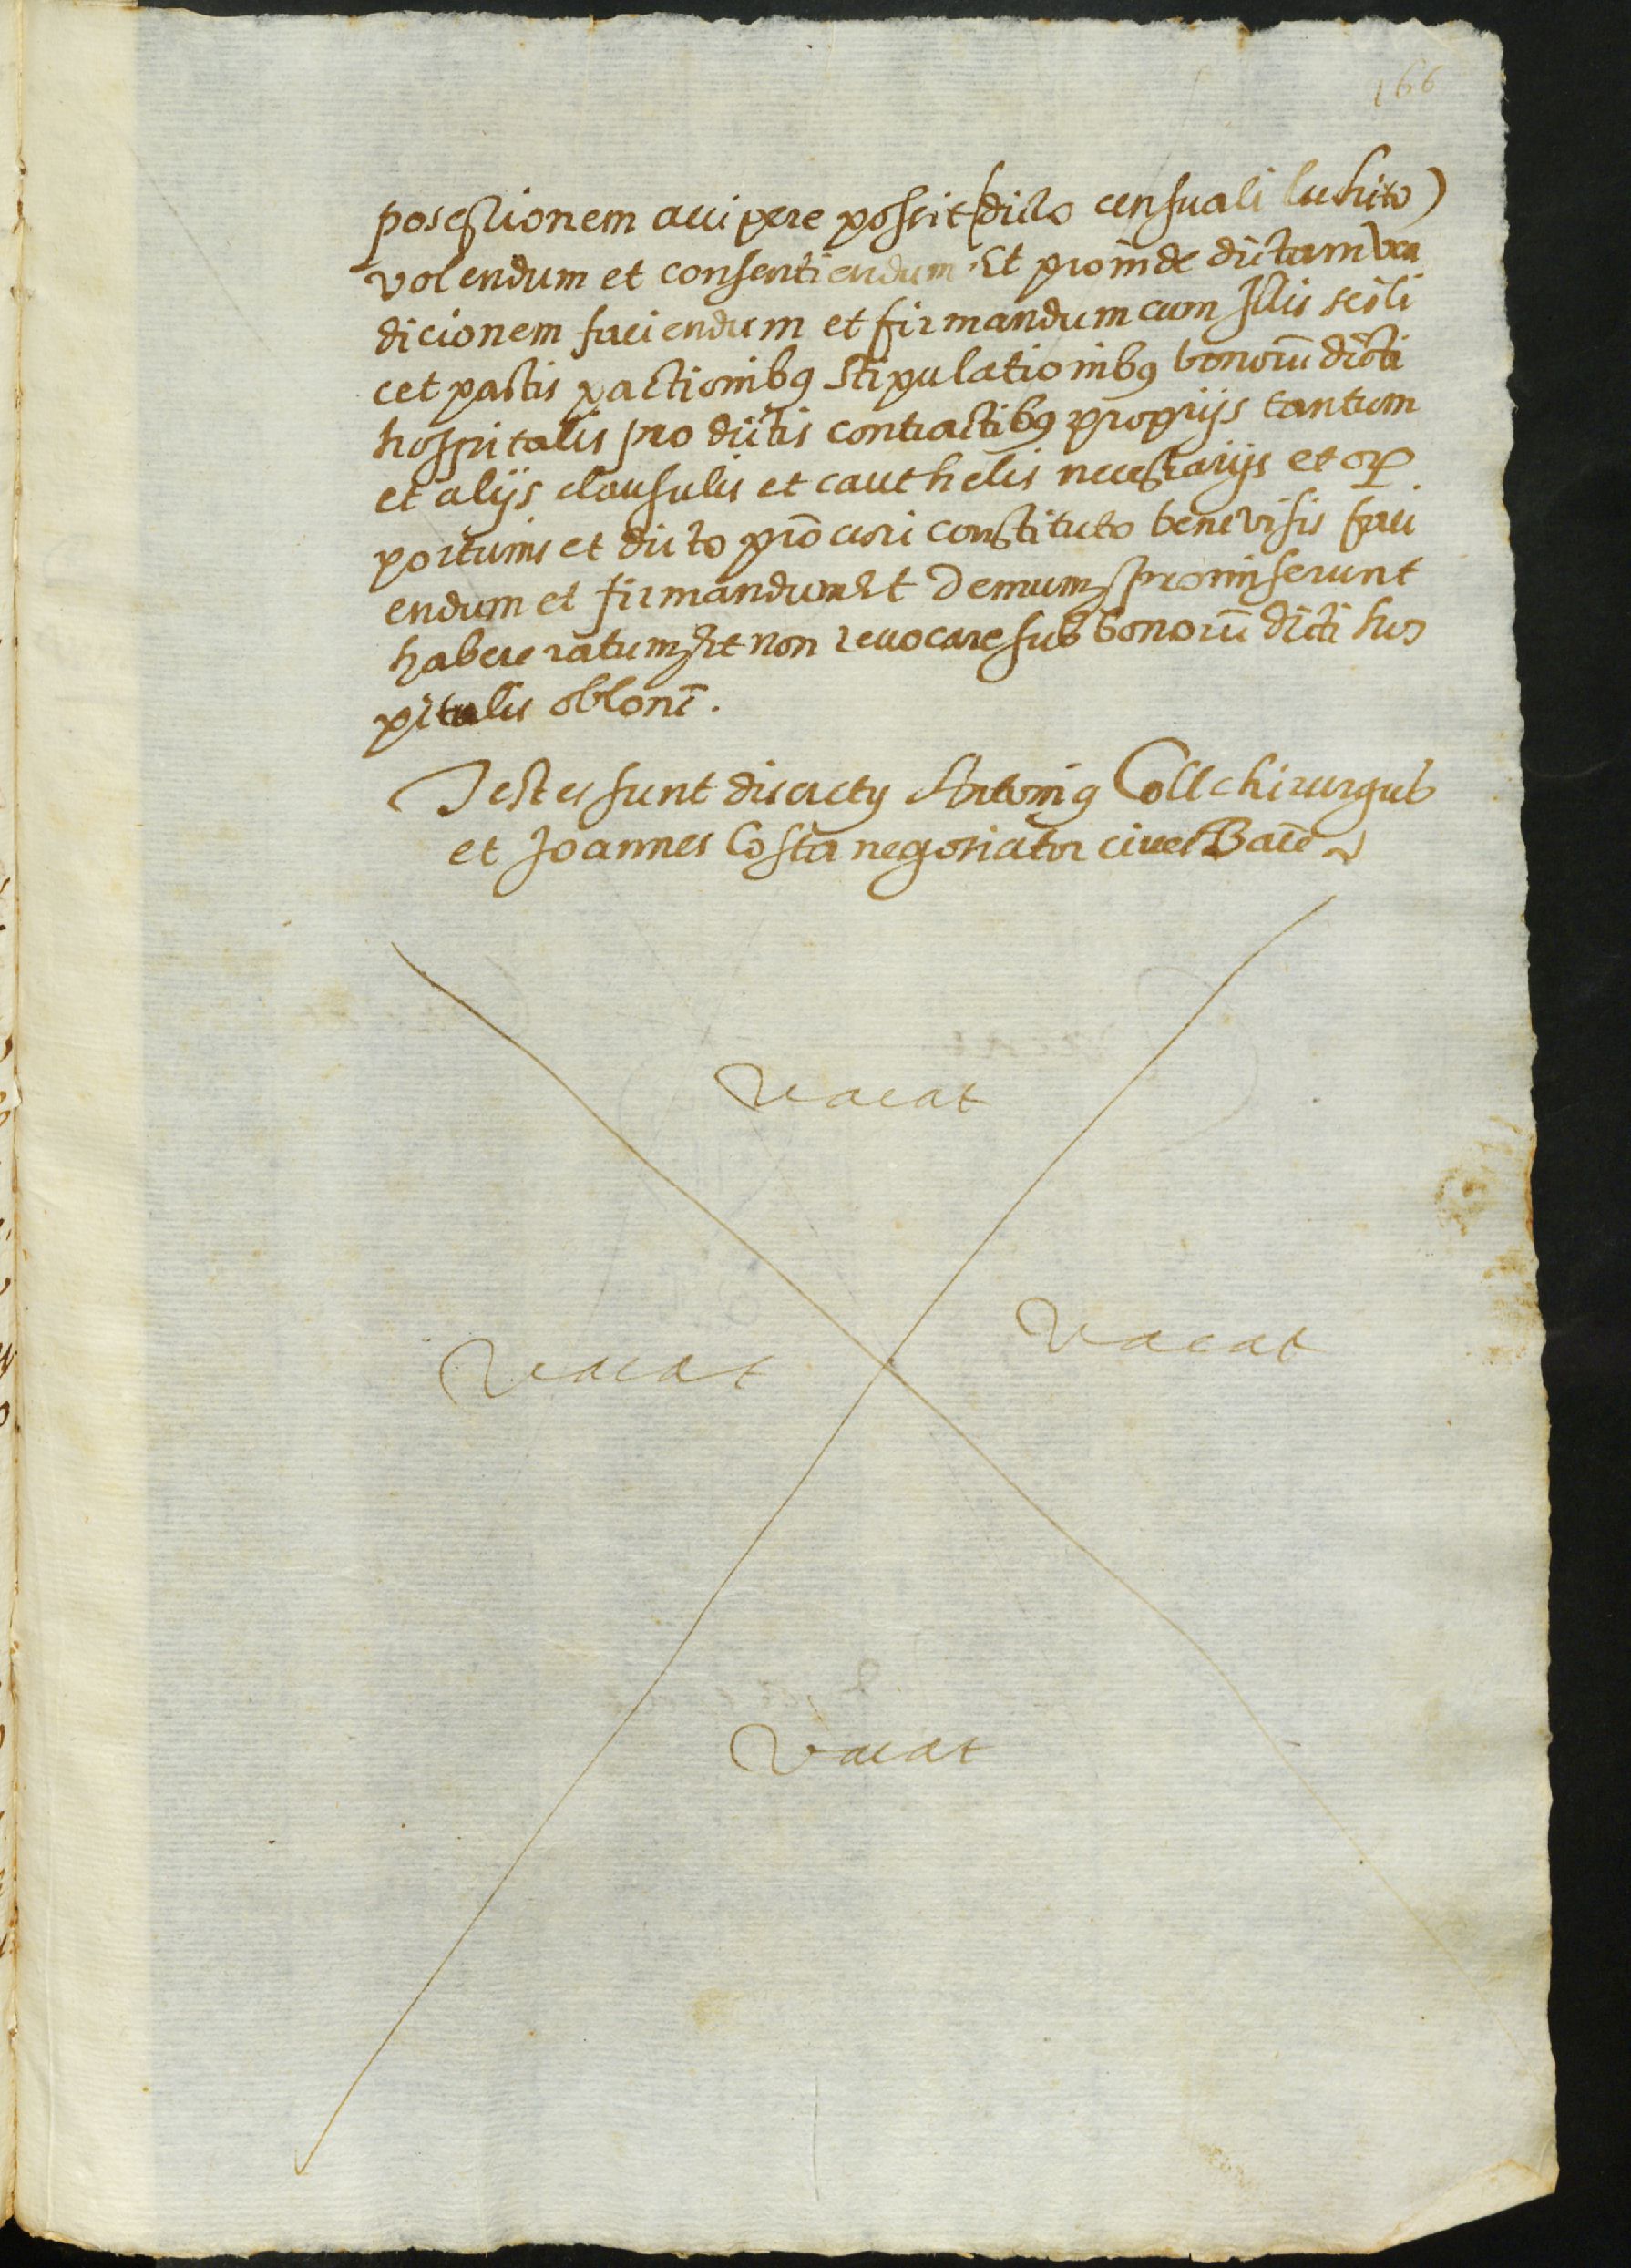 166
posessionem accipere possit (dicto censuali luhito)
volendum et consentiendum Et proinde dictam ven
dicionem faciendum et firmandum cum Illis scili
cet pactis pactionibꝯ stipulationibꝯ bonorū dicti
hospitalis pro dictis contractibꝯ proprijs tantum
et alijs clausulis et cauthelis necessarijs et op
portunis et dicto prōcuri constituto benevisis faci
endum et firmandum Et Demum promiserunt
habere ratum Et non revocare sub bonorū dicti hos
pitalis oblonē.
Testes sunt discretꝯ Antoniꝯ Coll chirurgus
et Joannes Costa negoriator cives Barē
vacat
vacat
vacat
vacat